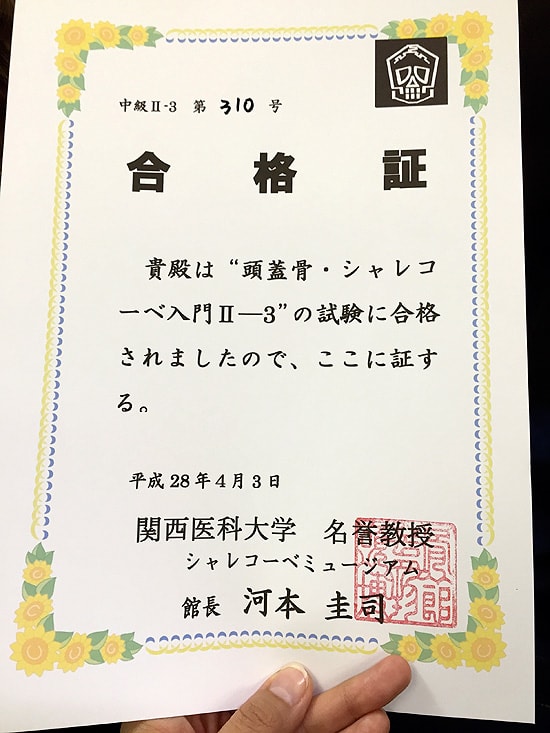 中級Ⅱ-3 第 310 号
合格証
貴殿は“頭蓋骨・シャレコ
ーベ入門Ⅱ―3”の試験に合格
されましたので、ここに証す
る。
平成28年4月3日
関西医科大学 名誉教授
シャレコーベミュージアム
館長 河本 圭司